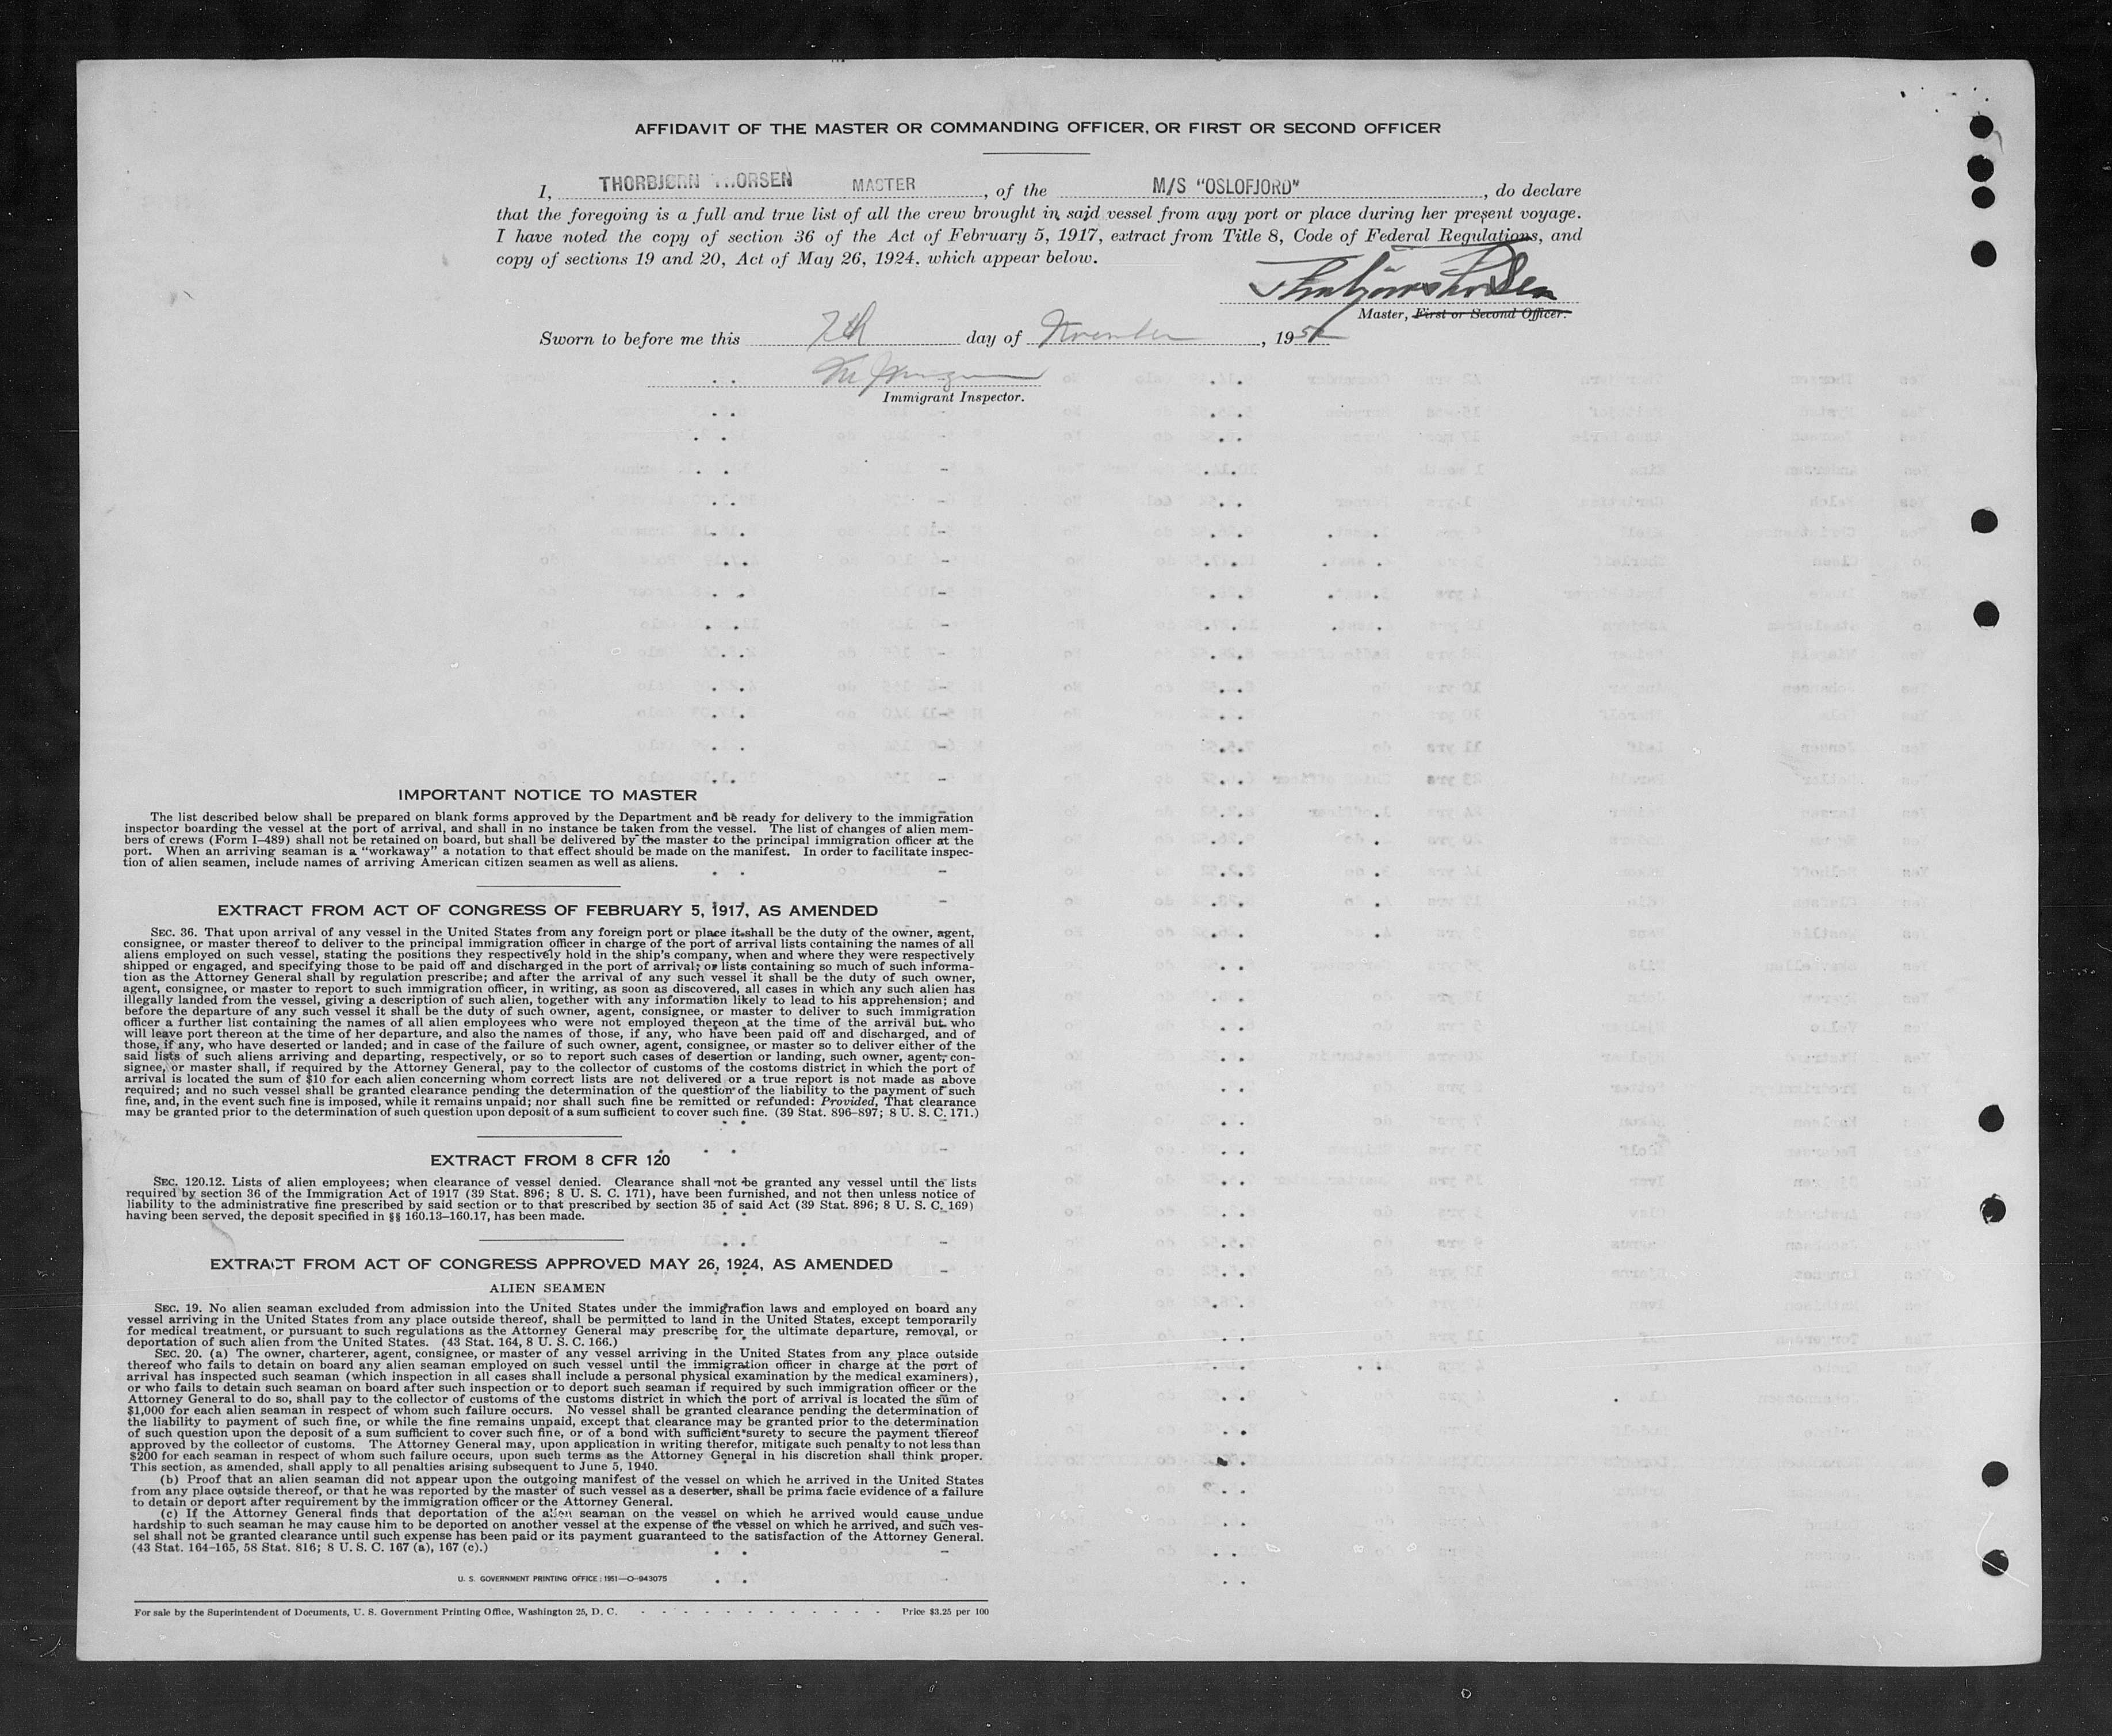 AFFIDAVIT OF THE MASTER OR COMMANDING OFFICER, OR FIRST OR SECOND OFFICER
I, THORBJØRN THORSEN MASTER, of the M/S "OSLOFJORD", do declare
that the foregoing is a full and true list of all the crew brought in said vessel from any port or place during her present voyage.
I have noted the copy of section 36 of the Act of February 5, 1917, extract from Title 8, Code of Federal Regulations, and
copy of sections 19 and 20, Act of May 26, 1924, which appear below.
Thorbjørn Thorsen
Master, First or Second Officer.
Sworn to before me this 7th day of November, 1952
Immigrant Inspector.
IMPORTANT NOTICE TO MASTER
The list described below shall be prepared on blank forms approved by the Department and be ready for delivery to the immigration
inspector boarding the vessel at the port of arrival, and shall in no instance be taken from the vessel. The list of changes of alien mem-
bers of crews (Form I–489) shall not be retained on board, but shall be delivered by the master to the principal immigration officer at the
port. When an arriving seaman is a "workaway" a notation to that effect should be made on the manifest. In order to facilitate inspec-
tion of alien seamen, include names of arriving American citizen seamen as well as aliens.
EXTRACT FROM ACT OF CONGRESS OF FEBRUARY 5, 1917, AS AMENDED
SEC. 36. That upon arrival of any vessel in the United States from any foreign port or place it shall be the duty of the owner, agent,
consignee, or master thereof to deliver to the principal immigration officer in charge of the port of arrival lists containing the names of all
aliens employed on such vessel, stating the positions they respectively hold in the ship's company, when and where they were respectively
shipped or engaged, and specifying those to be paid off and discharged in the port of arrival; or lists containing so much of such informa-
tion as the Attorney General shall by regulation prescribe; and after the arrival of any such vessel it shall be the duty of such owner,
agent, consignee, or master to report to such immigration officer, in writing, as soon as discovered, all cases in which any such alien has
illegally landed from the vessel, giving a description of such alien, together with any information likely to lead to his apprehension; and
before the departure of any such vessel it shall be the duty of such owner, agent, consignee, or master to deliver to such immigration
officer a further list containing the names of all alien employees who were not employed thereon at the time of the arrival but who
will leave port thereon at the time of her departure, and also the names of those, if any, who have been paid off and discharged, and of
those, if any, who have deserted or landed; and in case of the failure of such owner, agent, consignee, or master so to deliver either of the
said lists of such aliens arriving and departing, respectively, or so to report such cases of desertion or landing, such owner, agent, con-
signee, or master shall, if required by the Attorney General, pay to the collector of customs of the costoms district in which the port of
arrival is located the sum of $10 for each alien concerning whom correct lists are not delivered or a true report is not made as above
required; and no such vessel shall be granted clearance pending the determination of the question of the liability to the payment of such
fine, and, in the event such fine is imposed, while it remains unpaid; nor shall such fine be remitted or refunded: Provided, That clearance
may be granted prior to the determination of such question upon deposit of a sum sufficient to cover such fine. (39 Stat. 896–897; 8 U. S. C. 171.)
EXTRACT FROM 8 CFR 120
SEC. 120.12. Lists of alien employees; when clearance of vessel denied. Clearance shall not be granted any vessel until the lists
required by section 36 of the Immigration Act of 1917 (39 Stat. 896; 8 U. S. C. 171), have been furnished, and not then unless notice of
liability to the administrative fine prescribed by said section or to that prescribed by section 35 of said Act (39 Stat. 896; 8 U. S. C. 169)
having been served, the deposit specified in §§ 160.13–160.17, has been made.
EXTRACT FROM ACT OF CONGRESS APPROVED MAY 26, 1924, AS AMENDED
ALIEN SEAMEN
SEC. 19. No alien seaman excluded from admission into the United States under the immigration laws and employed on board any
vessel arriving in the United States from any place outside thereof, shall be permitted to land in the United States, except temporarily
for medical treatment, or pursuant to such regulations as the Attorney General may prescribe for the ultimate departure, removal, or
deportation of such alien from the United States. (43 Stat. 164, 8 U. S. C. 166.)
SEC. 20. (a) The owner, charterer, agent, consignee, or master of any vessel arriving in the United States from any place outside
thereof who fails to detain on board any alien seaman employed on such vessel until the immigration officer in charge at the port of
arrival has inspected such seaman (which inspection in all cases shall include a personal physical examination by the medical examiners),
or who fails to detain such seaman on board after such inspection or to deport such seaman if required by such immigration officer or the
Attorney General to do so, shall pay to the collector of customs of the customs district in which the port of arrival is located the sum of
$1,000 for each alien seaman in respect of whom such failure occurs. No vessel shall be granted clearance pending the determination of
the liability to payment of such fine, or while the fine remains unpaid, except that clearance may be granted prior to the determination
of such question upon the deposit of a sum sufficient to cover such fine, or of a bond with sufficient surety to secure the payment thereof
approved by the collector of customs. The Attorney General may, upon application in writing therefor, mitigate such penalty to not less than
$200 for each seaman in respect of whom such failure occurs, upon such terms as the Attorney General in his discretion shall think proper.
This section, as amended, shall apply to all penalties arising subsequent to June 5, 1940.
(b) Proof that an alien seaman did not appear upon the outgoing manifest of the vessel on which he arrived in the United States
from any place outside thereof, or that he was reported by the master of such vessel as a deserter, shall be prima facie evidence of a failure
to detain or deport after requirement by the immigration officer or the Attorney General.
(c) If the Attorney General finds that deportation of the alien seaman on the vessel on which he arrived would cause undue
hardship to such seaman he may cause him to be deported on another vessel at the expense of the vessel on which he arrived, and such ves-
sel shall not be granted clearance until such expense has been paid or its payment guaranteed to the satisfaction of the Attorney General.
(43 Stat. 164–165, 58 Stat. 816; 8 U. S. C. 167 (a), 167 (c).)
U. S. GOVERNMENT PRINTING OFFICE : 1951—O–943075
For sale by the Superintendent of Documents, U. S. Government Printing Office, Washington 25, D. C. - - - - - - - - - - - - Price $3.25 per 100